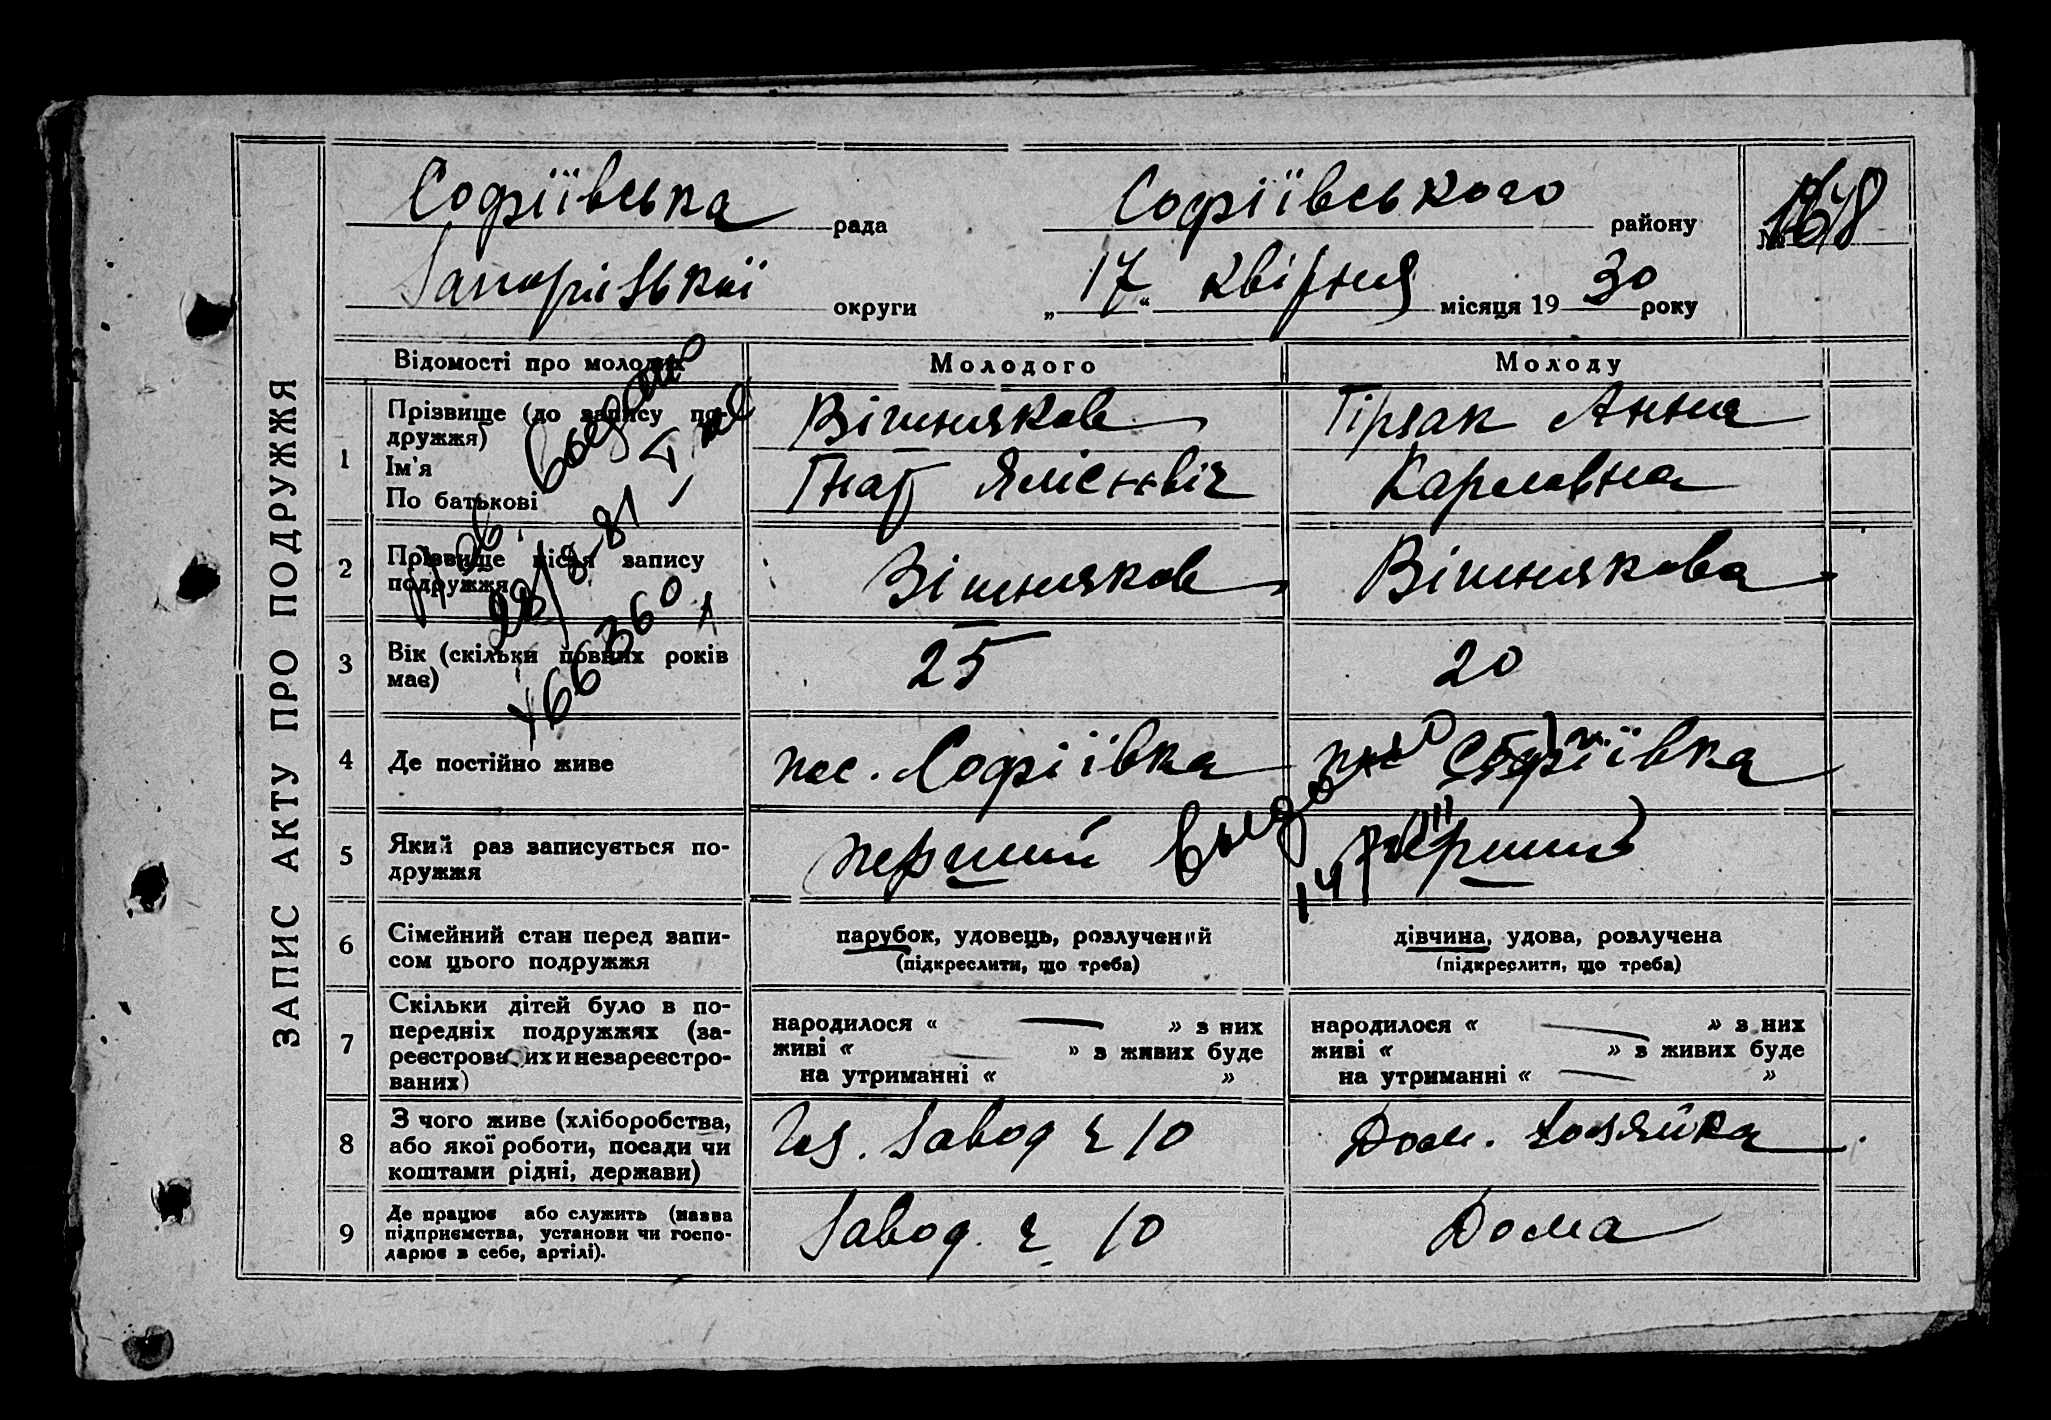 ЗАПИС АКТУ ПРО ПОДРУЖЖЯ
Софіївська рада Софіївського району
округи „ 17 “ квітня місяця 19 30 року
Відомості про молодих Молодого Молоду
1 Прізвище (до запису по-
дружжя)
Вішняков Анна
Ім'я
По батькові
Гнат Карловна
2 Прізвище після запису
подружжя
Вішняков Вішнякова
3 Вік (скільки повних років
має)
25 20
4 Де постійно живе пос. Софіївка Софіївка
5 Який раз записується по-
дружжя
перший перший
6 Сімейний стан перед запи-
сом цього подружжя
парубок, удовець, розлучений
(підкреслити, що треба)
дівчина, удова, розлучена
(підкреслити, що треба)
7 Скільки дітей було в по-
передніх подружжях (за-
реєстрованих и незареєстро-
ваних)
народилося « — » з них
живі « — » з живих буде
на утриманні « »
народилося « — » з них
живі « » з живих буде
на утриманні « — »
8 З чого живе (хліборобства,
або якої роботи, посади чи
коштами рідні, держави)
Завод ч 10 Дом. хозяйка
9 Де працює або служить (назва
підприємства, установи чи госпо-
дарює в себе, артілі).
Завод. ч 10 Дома